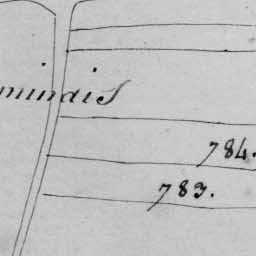 minais
784.
783.